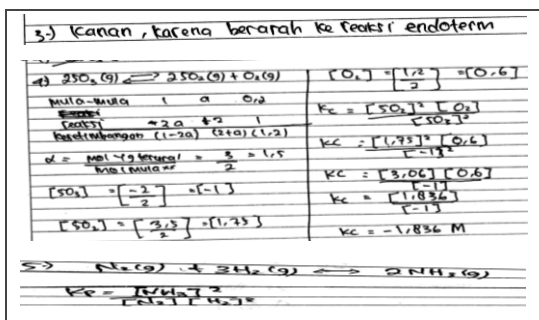 3.) Kanan, karena berarah ke reaksi endoterm
4) 2SO₃ (g) ⇌ 2SO₂ (g) + O₂ (g)
Mula-mula 1 a 0,2
reaksi -2a +2 1
Kesetimbangan (1-2a) (2+a) (1,2)
α = mol yg terurai / mol mula² = 3/2 = 1,5
[SO₃] = [-2/2] = [-1]
[SO₂] = [3,5/2] = [1,75]
[O₂] = [1,2/2] = [0,6]
Kc = [SO₂]² [O₂] / [SO₃]²
Kc = [1,75]² [0,6] / [-1]²
Kc = [3,06] [0,6] / [-1]
Kc = [1,836] / [-1]
Kc = -1,836 M
5.) N₂ (g) + 3H₂ (g) ⇌ 2NH₃ (g)
Kp = [NH₃]² / [N₂] [H₂]²